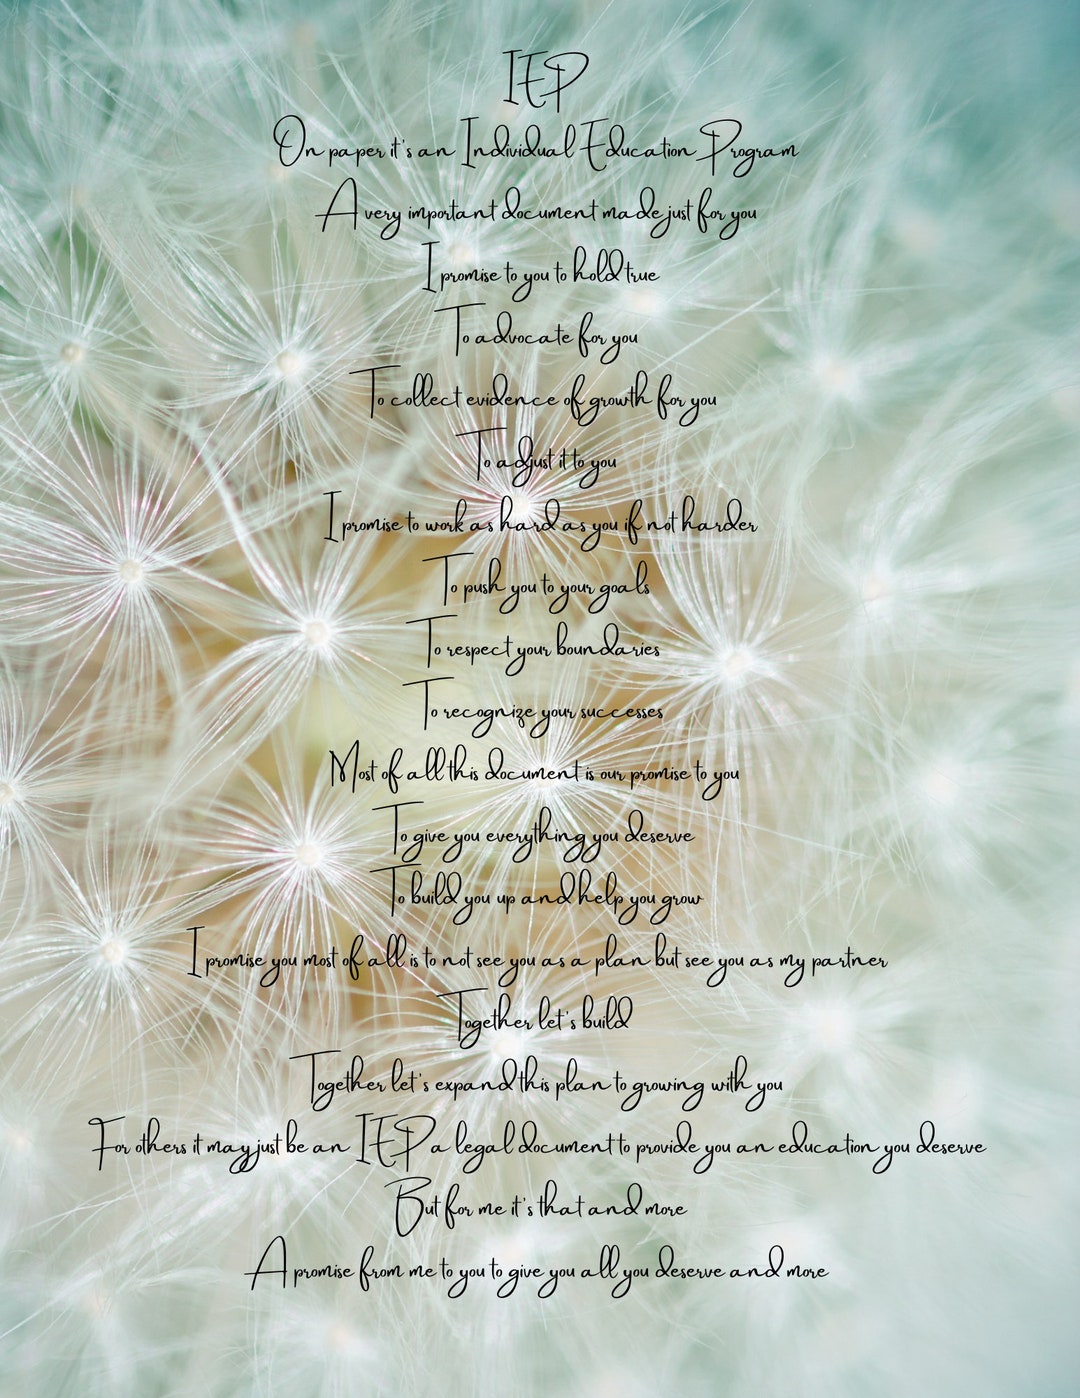 IEP
On paper it's an Individual Education Program
A very important document made just for you
I promise to you to hold true
To advocate for you
To collect evidence of growth for you
To adjust it to you
I promise to work as hard as you if not harder
To push you to your goals
To respect your boundaries
To recognize your successes
Most of all this document is our promise to you
To give you everything you deserve
To build you up and help you grow
I promise you most of all is to not see you as a plan but see you as my partner
Together let's build
Together let's expand this plan to growing with you
For others it may just be an IEP a legal document to provide you an education you deserve
But for me it's that and more
A promise from me to you to give you all you deserve and more